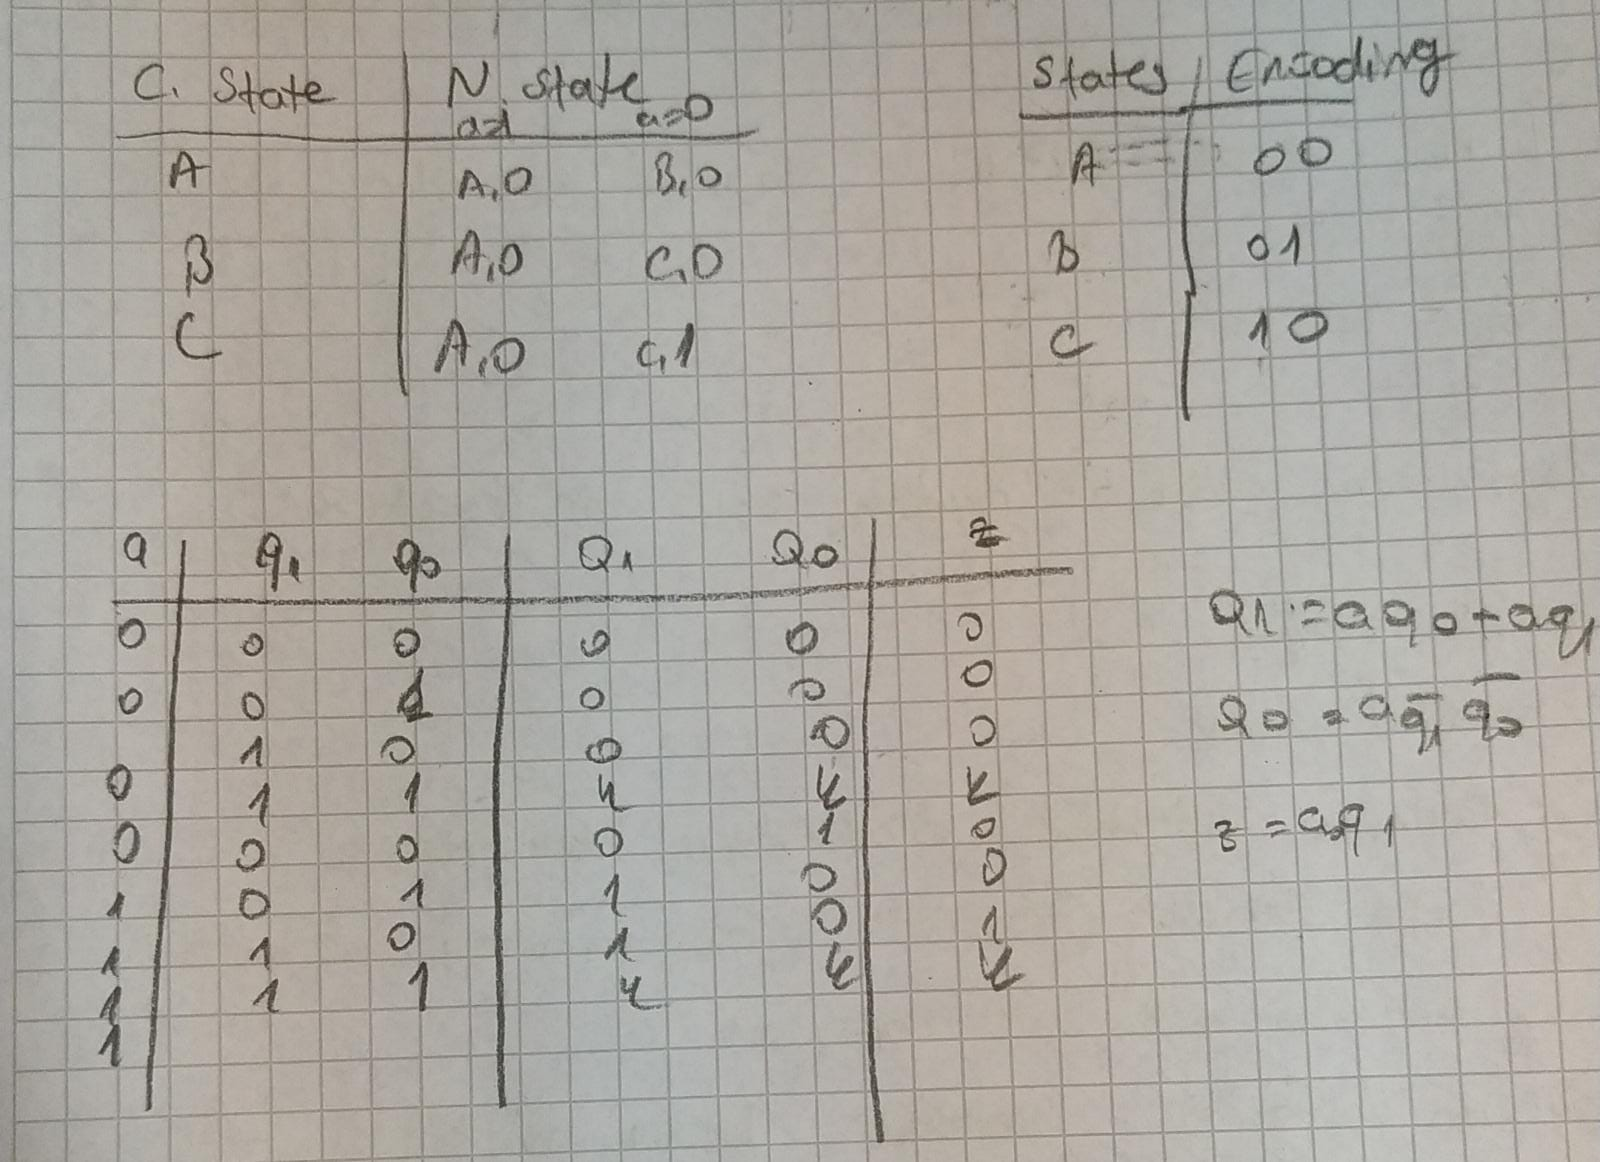 C. State | N. State
a=1 a=0
A | A,0 B,0
B | A,0 C,0
C | A,0 C,1
States | Encoding
A | 00
B | 01
C | 10
a | q1 q0 | Q1 Q0 | z
0 | 0 0 | 0 0 | 0
0 | 0 1 | 0 0 | 0
0 | 1 0 | 0 0 | 0
0 | 1 1 | x x | x
1 | 0 0 | 0 1 | 0
1 | 0 1 | 1 0 | 0
1 | 1 0 | 1 0 | 1
1 | 1 1 | x x | x
Q1 = aq0 + aq1
Q0 = aq̅1 q̅0
z = a.q1